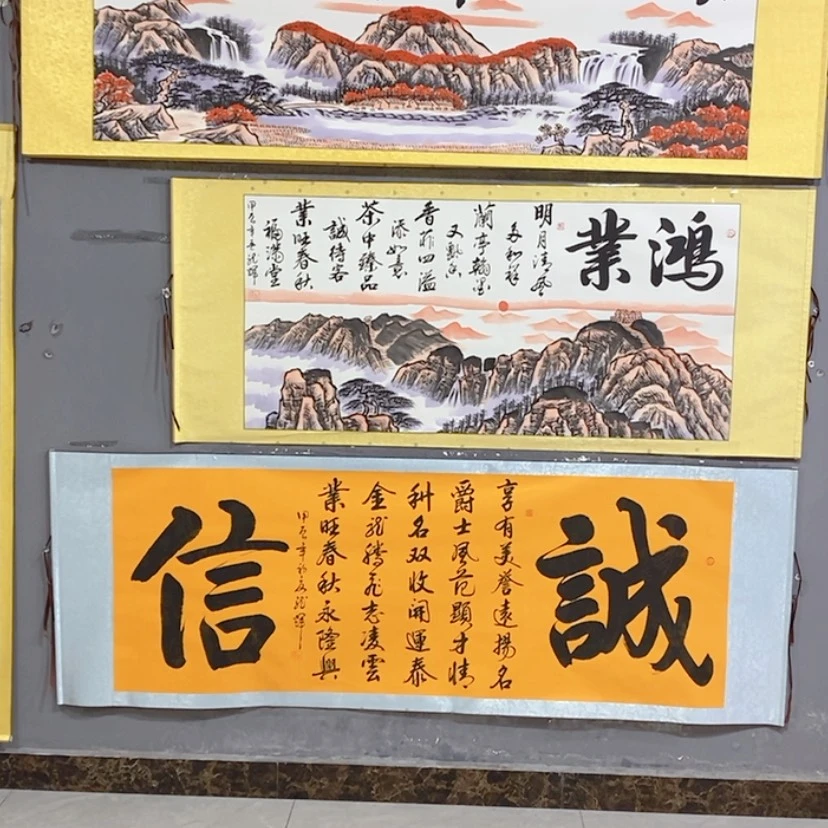 鸿業
明月清風
多和祥
蘭亭翰墨
又飘香
香菲四溢
添如意
茶中臻品
誠待客
業旺春秋
福滿堂
甲辰年
誠
享有美誉遠揚名
爵士風范顯才情
科名双收開運泰
金龍騰飛志凌雲
業旺春秋永隆興
甲辰年
信